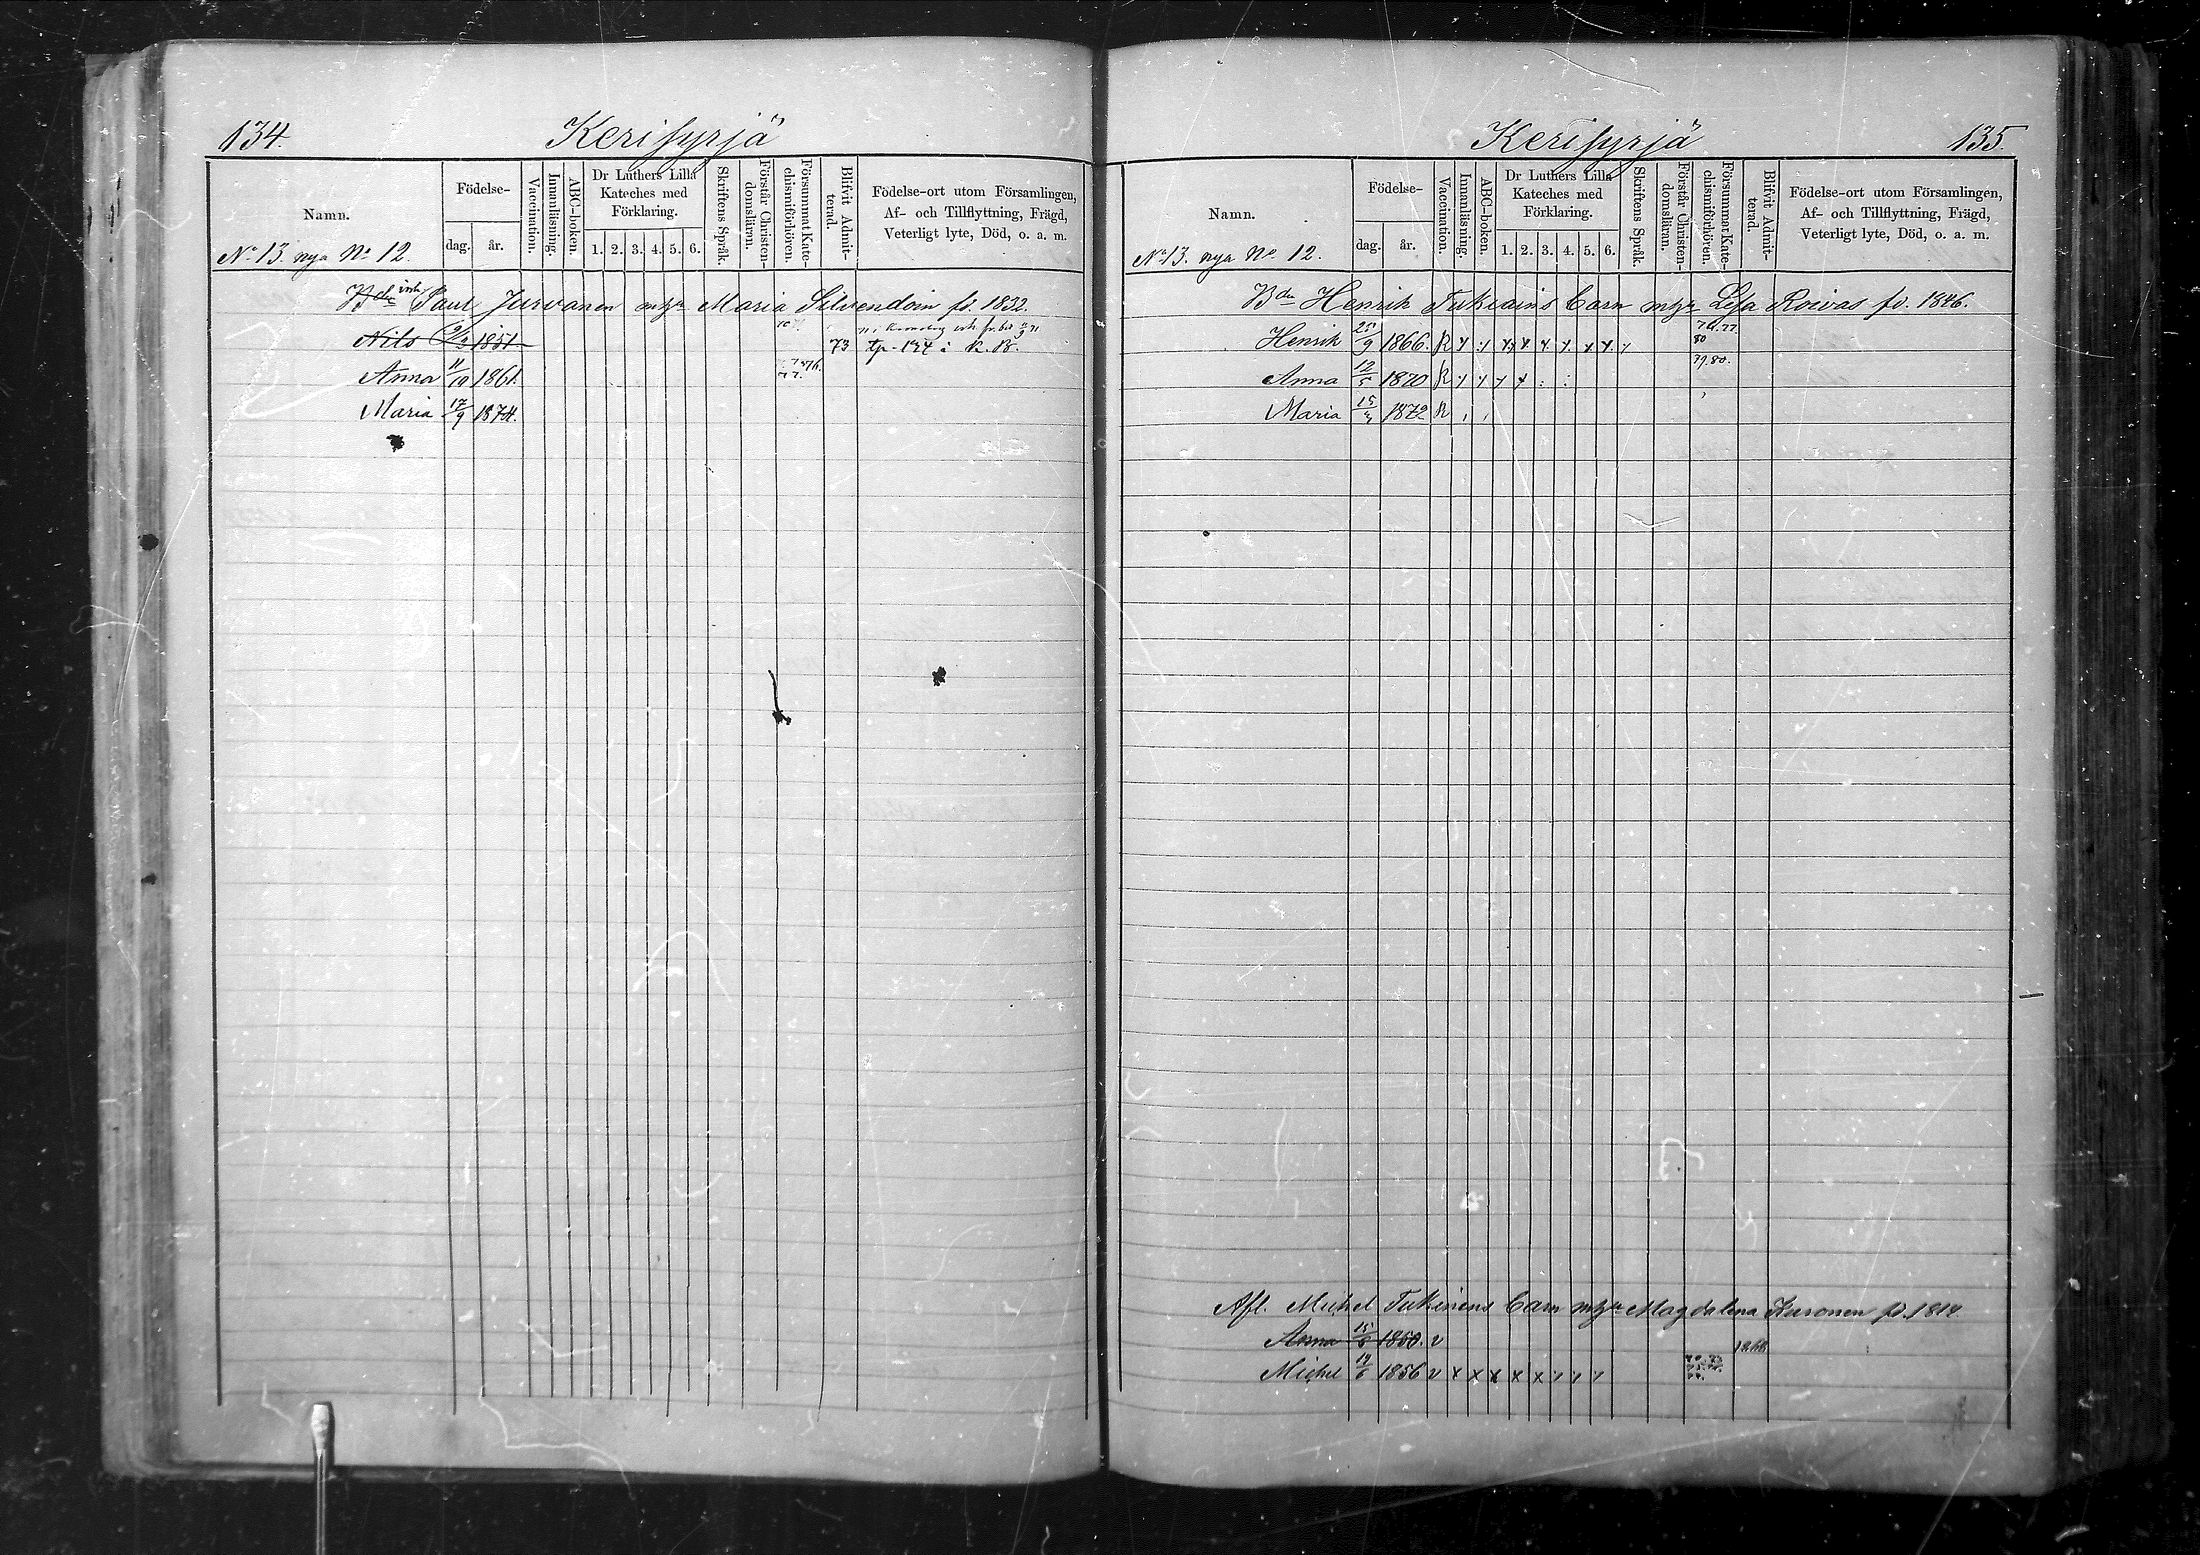 134.
Kerisyrjä
Namn.
Födelse-
dag.
år.
Vaccination.
Innanläsning.
ABC-boken.
Dr Luthers Lilla
Kateches med
Förklaring.
1. 2. 3. 4. 5. 6.
Skriftens Språk.
Förstår Christen-
domsläran.
Försummat Kate-
chismiförhören.
Blifvit Admit-
terad.
Födelse-ort utom Församlingen,
Af- och Tillflyttning, Frägd,
Veterligt lyte, Död, o. a. m.
No 13. nya No 12.
Paul Jurvanen Maria fd. 1832.
Nils 1851
73
Anna 11/10 1861.
77.
Maria 17/9 1874.
Kerisyrjä
135.
Namn.
Födelse-
dag.
år.
Vaccination.
Innanläsning.
ABC-boken.
Dr Luthers Lilla
Kateches med
Förklaring.
1. 2. 3. 4. 5. 6.
Skriftens Språk.
Förstår Christen-
domsläran.
Försummat Kate-
chismiförhören.
Blifvit Admit-
terad.
Födelse-ort utom Församlingen,
Af- och Tillflyttning, Frägd,
Veterligt lyte, Död, o. a. m.
No 13. nya No 12.
Bdn Henrik Tukiains barn Lisa Roivas fd. 1846.
76.77.
Henrik 25/9 1866. R
80
Anna 12/5 1870 R
79.80.
Maria 1872 R
Afl. Michel Tukinens barn Magdalena Kuronen fd.
Anna 1850. v
Michel 19/6 1856 v x x x x x